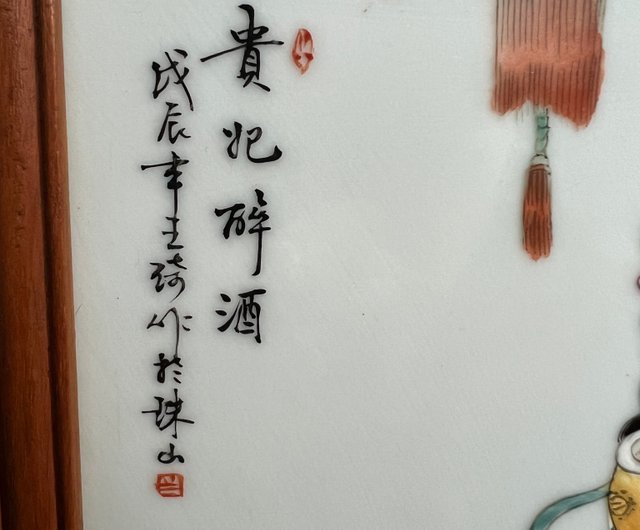 貴妃醉酒
戊辰年王琦作於珠山